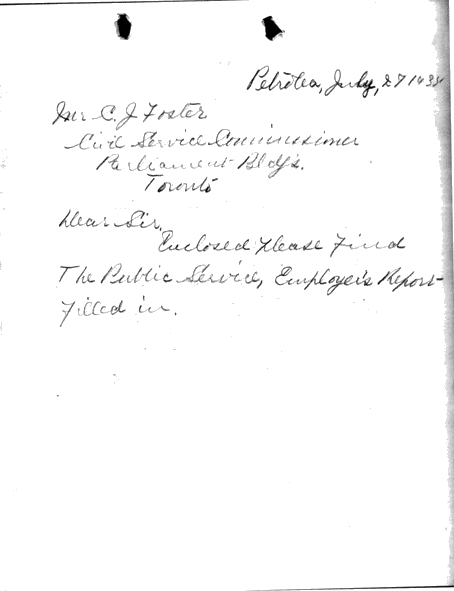 Petrolea, July, 27 1938
Mr C. J Foster
Civil Service Commissioner
Parliament Bldg's.
Toronto
Dear Sir,
Enclosed Please Find
The Public Service, Employeis Report
Filled in.